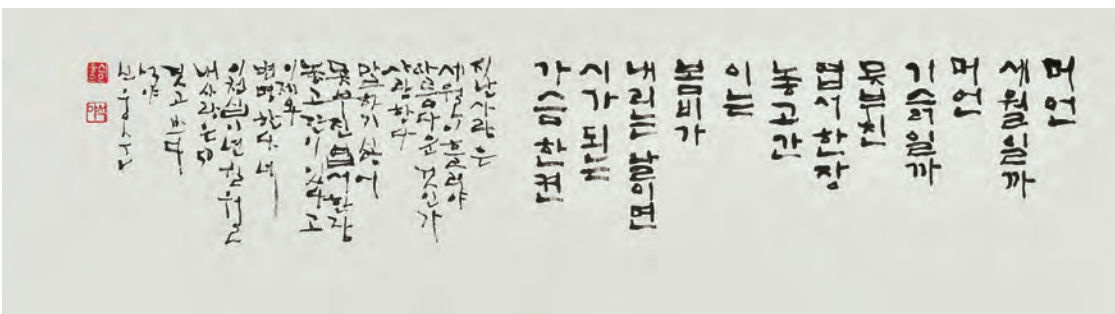 머언
세월일까
머언
기슭일까
못부친
엽서한장
놓고간
이는
봄비가
내리는 날이면
시가 되는
가슴 한켠
지난사랑은
세월이 흘러야
아름다운 것인가
사랑한다
말하기 싫어
못부친 엽서한장
놓고 간이 있다고
이제와
변명한다
이천십이년
내사랑은
석야
신웅순